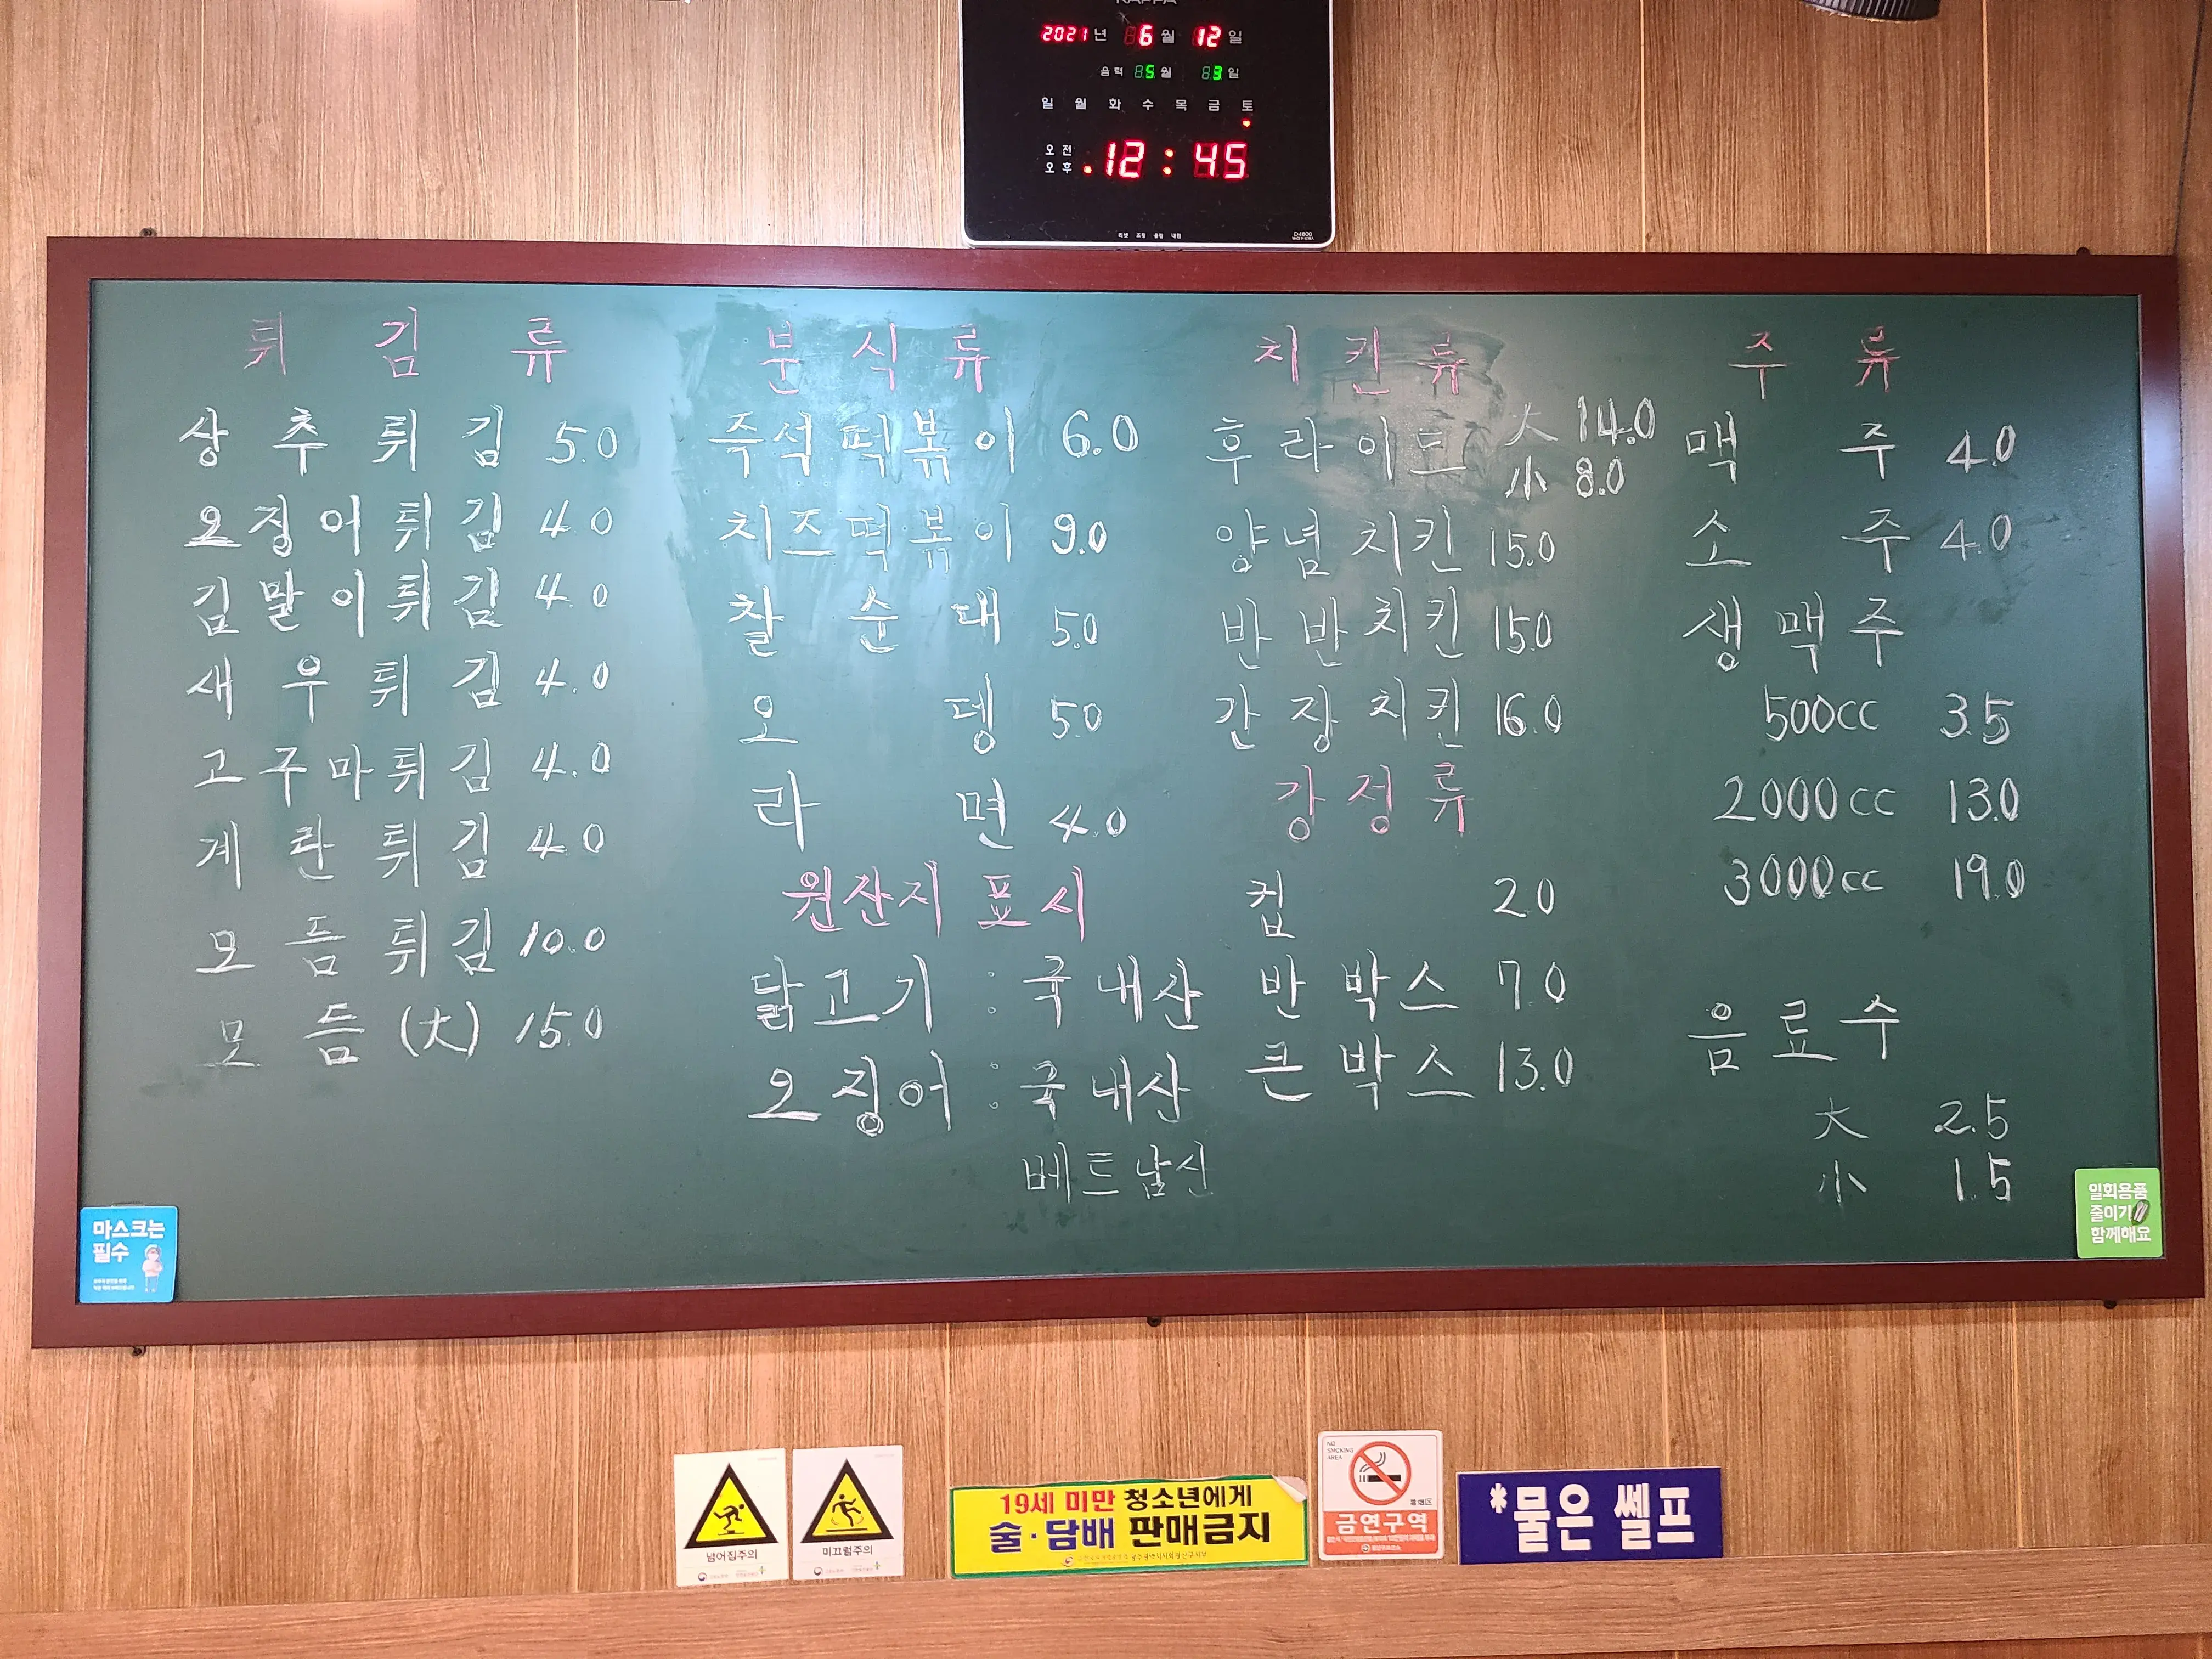 2021 년 6 월 12 일
음력 5 월 3 일
일 월 화 수 목 금 토
오전
오후
12 : 45
튀 김 류
상 추 튀 김 5.0
오징어튀김 4.0
김말이튀김 4.0
새 우 튀 김 4.0
고구마튀김 4.0
계 란 튀 김 4.0
모 듬 튀 김 10.0
모 듬 (大) 15.0
분 식 류
즉석떡볶이 6.0
치즈떡볶이 9.0
찰 순 대 5.0
오 뎅 5.0
라 면 4.0
원산지 표시
닭고기 : 국내산
오징어 : 국내산
베트남산
치 킨 류
후라이드 大 14.0
小 8.0
양념치킨 15.0
반반치킨 15.0
간장치킨 16.0
강 정 류
컵 2.0
반 박스 7.0
큰 박스 13.0
주 류
맥 주 4.0
소 주 4.0
생맥주
500cc 3.5
2000cc 13.0
3000cc 19.0
음료수
大 2.5
小 1.5
마스크는
필수
일회용품
줄이기
함께해요
넘어짐주의
미끄럼주의
19세 미만 청소년에게
술·담배 판매금지
NO
SMOKING
AREA
금연구역
*물은 쎌프